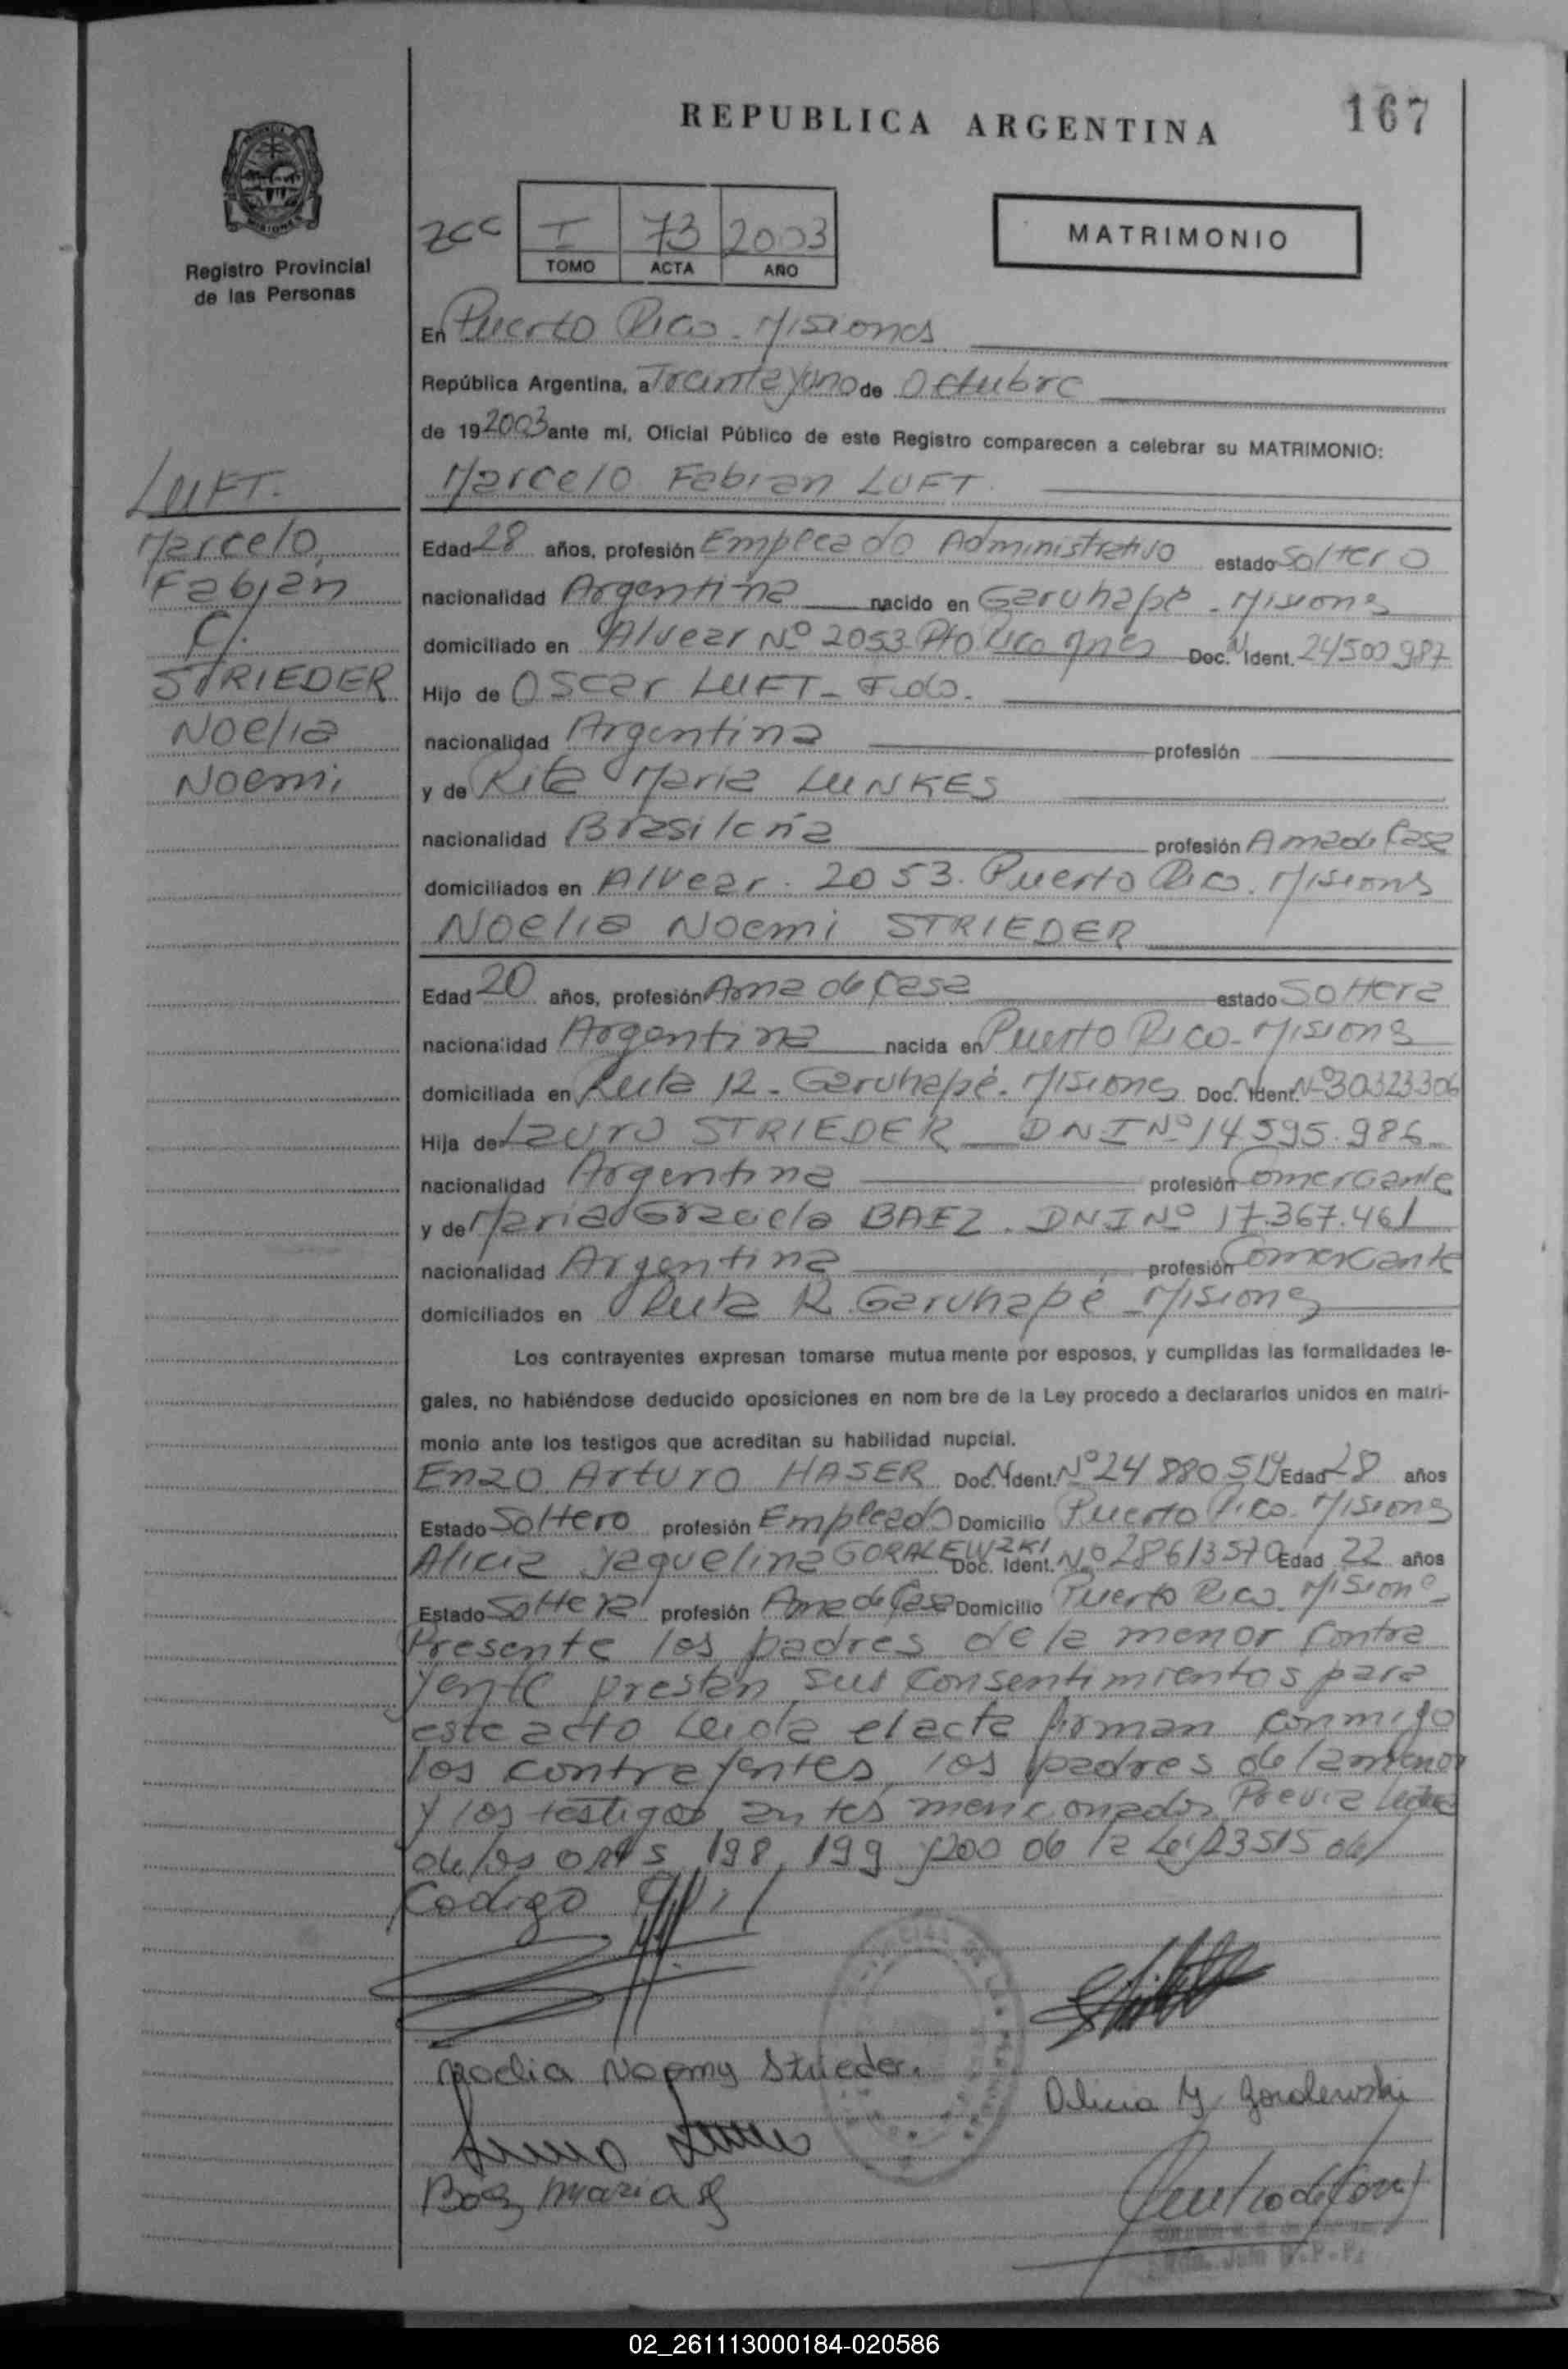 REPUBLICA ARGENTINA
167
Registro Provincial
de las Personas
zcc I 73 2003
TOMO ACTA AÑO
MATRIMONIO
En Puerto Rico - Misiones
República Argentina, a Treintayuno de Octubre
de 19 2003 ante mi, Oficial Público de este Registro comparecen a celebrar su MATRIMONIO:
Marcelo Fabian LUFT.
LUFT.
Marcelo
Fabian
C/.
STRIEDER
Noelia
Noemi
Edad 28 años, profesión Empleado Administrativo estado Soltero
nacionalidad Argentina nacido en Garuhapé - Misiones
domiciliado en Alvear Nº 2053 Pto Rico Mnes Doc. N Ident. 24500987
Hijo de Oscar LUFT - Fdo.
nacionalidad Argentina profesión
y de Rita Maria LUNKES
nacionalidad Brasileña profesión Ama de Casa
domiciliados en Alvear. 2053. Puerto Rico. Misiones
Noelia Noemi STRIEDER
Edad 20 años, profesión Ama de Casa estado Soltera
nacionalidad Argentina nacida en Puerto Rico - Misiones
domiciliada en Ruta 12 - Garuhapé - Misiones Doc. N Ident. Nº 30323306
Hija de Lauro STRIEDER DNI Nº 14595.986
nacionalidad Argentina profesión Comerciante
y de Maria Graciela BAEZ. DNI Nº 17.367.461
nacionalidad Argentina profesión Comerciante
domiciliados en Ruta 12 Garuhapé - Misiones
Los contrayentes expresan tomarse mutua mente por esposos, y cumplidas las formalidades le-
gales, no habiéndose deducido oposiciones en nom bre de la Ley procedo a declararlos unidos en matri-
monio ante los testigos que acreditan su habilidad nupcial.
Enzo Arturo HASER Doc. N Ident. Nº 24880519 Edad 28 años
Estado Soltero profesión Empleado Domicilio Puerto Rico - Misiones
Alicia Yaquelina GORALEWZKI Doc. Ident. Nº 28613570 Edad 22 años
Estado Soltera profesión Ama de Casa Domicilio Puerto Rico Misiones
Presente los padres de la menor Contra
yente prestan sus Consentimientos para
este acto Leida el acta firman conmigo
los contrayentes, los padres de la menor
y los testigos antes mencionados Previa Lectura
de los arts 198, 199 y 200 de la Ley 23515 del
Codigo Civil
Noelia Noemy Strieder.
Alicia Y Goralewski
Baez Maria G
02_261113000184-020586